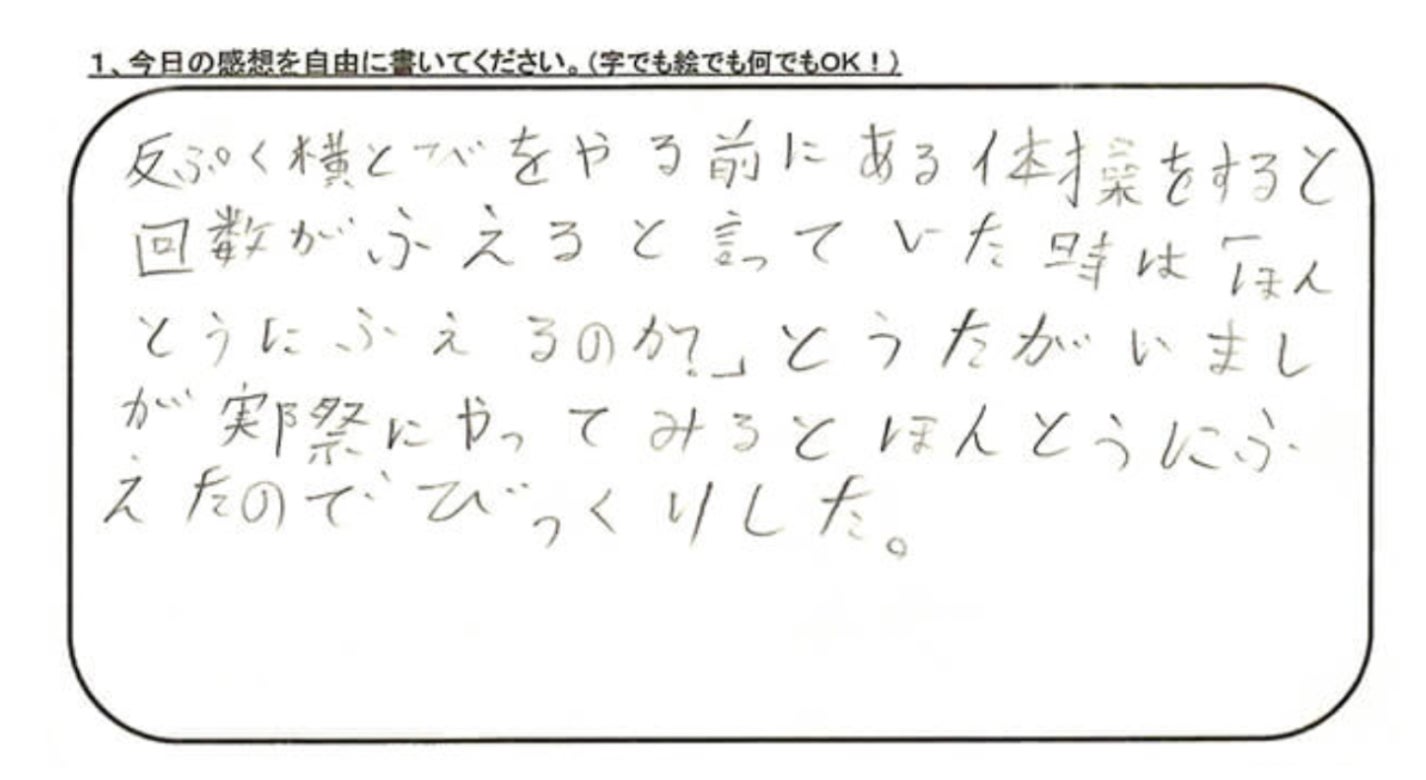 1、今日の感想を自由に書いてください。(字でも絵でも何でもOK!)
反ぷく横とびをやる前にある体操をすると
回数がふえると言っていた時は「ほん
とうにふえるのか?」とうたがいまし
が実際にやってみるとほんとうにふ
えたのでびっくりした。